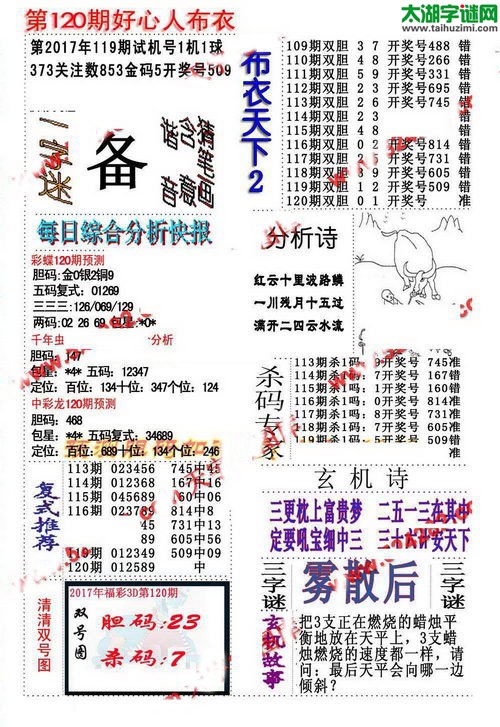 第120期好心人布衣
太湖字谜网
http://www.taihuzimi.com
第2017年119期试机号1机1球
373关注数853金码5开奖号509
一字迷
备
猜笔画
含意
猜音
布衣天下2
109期双胆 3 7 开奖号488 错
110期双胆 4 8 开奖号266 错
111期双胆 5 9 开奖号331 错
112期双胆 2 6 开奖号745 错
113期双胆
114期双胆
115期双胆 4 8
116期双胆 0 2 开奖号814 错
117期双胆 开奖号731 错
118期双胆 开奖号605 错
119期双胆 1 2 开奖号509 错
120期双胆 0 1 开奖号 准
每日综合分析快报
彩蝶120期预测
胆码:金0银2铜9
五码复式:01269
三三三:126/069/129
两码:02 26 69 包星:*0*
千年虫 分析
胆码:147
包星:*4* 五码:12347
定位:百位:134十位:347个位:124
中彩龙120期预测
胆码:468
包星:*4* 五码复式:34689
定位:百位:689十位:134个位:246
分析诗
红云十里波路鳞
一川残月十五过
满开二四云水流
杀码专家
113期杀1码: 开奖号 745准
114期杀1码:7开奖号 167错
115期杀1码: 开奖号 160错
116期杀1码:7开奖号 814准
117期杀1码:7开奖号 731错
118期杀1码: 开奖号 605准
119期杀1码: 开奖号 509错
120期杀1码: 开奖号 准
复式推荐
113期 023456 745中45
114期 012368 167中16
115期 045689 160中06
116期 023789 814中8
45 731中13
89 605中56
119期 012349 509中09
120期 012589 中
玄机诗
三更枕上富贵梦 二五一三在其中
定要吼宝细中三 三十六计安天下
清清双号图
2017年福彩3D第120期
双号图
胆码:23
杀码:7
三字谜
雾散后
三字谜
玄机故事
把3支正在燃烧的蜡烛平
衡地放在天平上,3支蜡
烛燃烧的速度都一样,请
问:最后天平会向哪一边
倾斜?